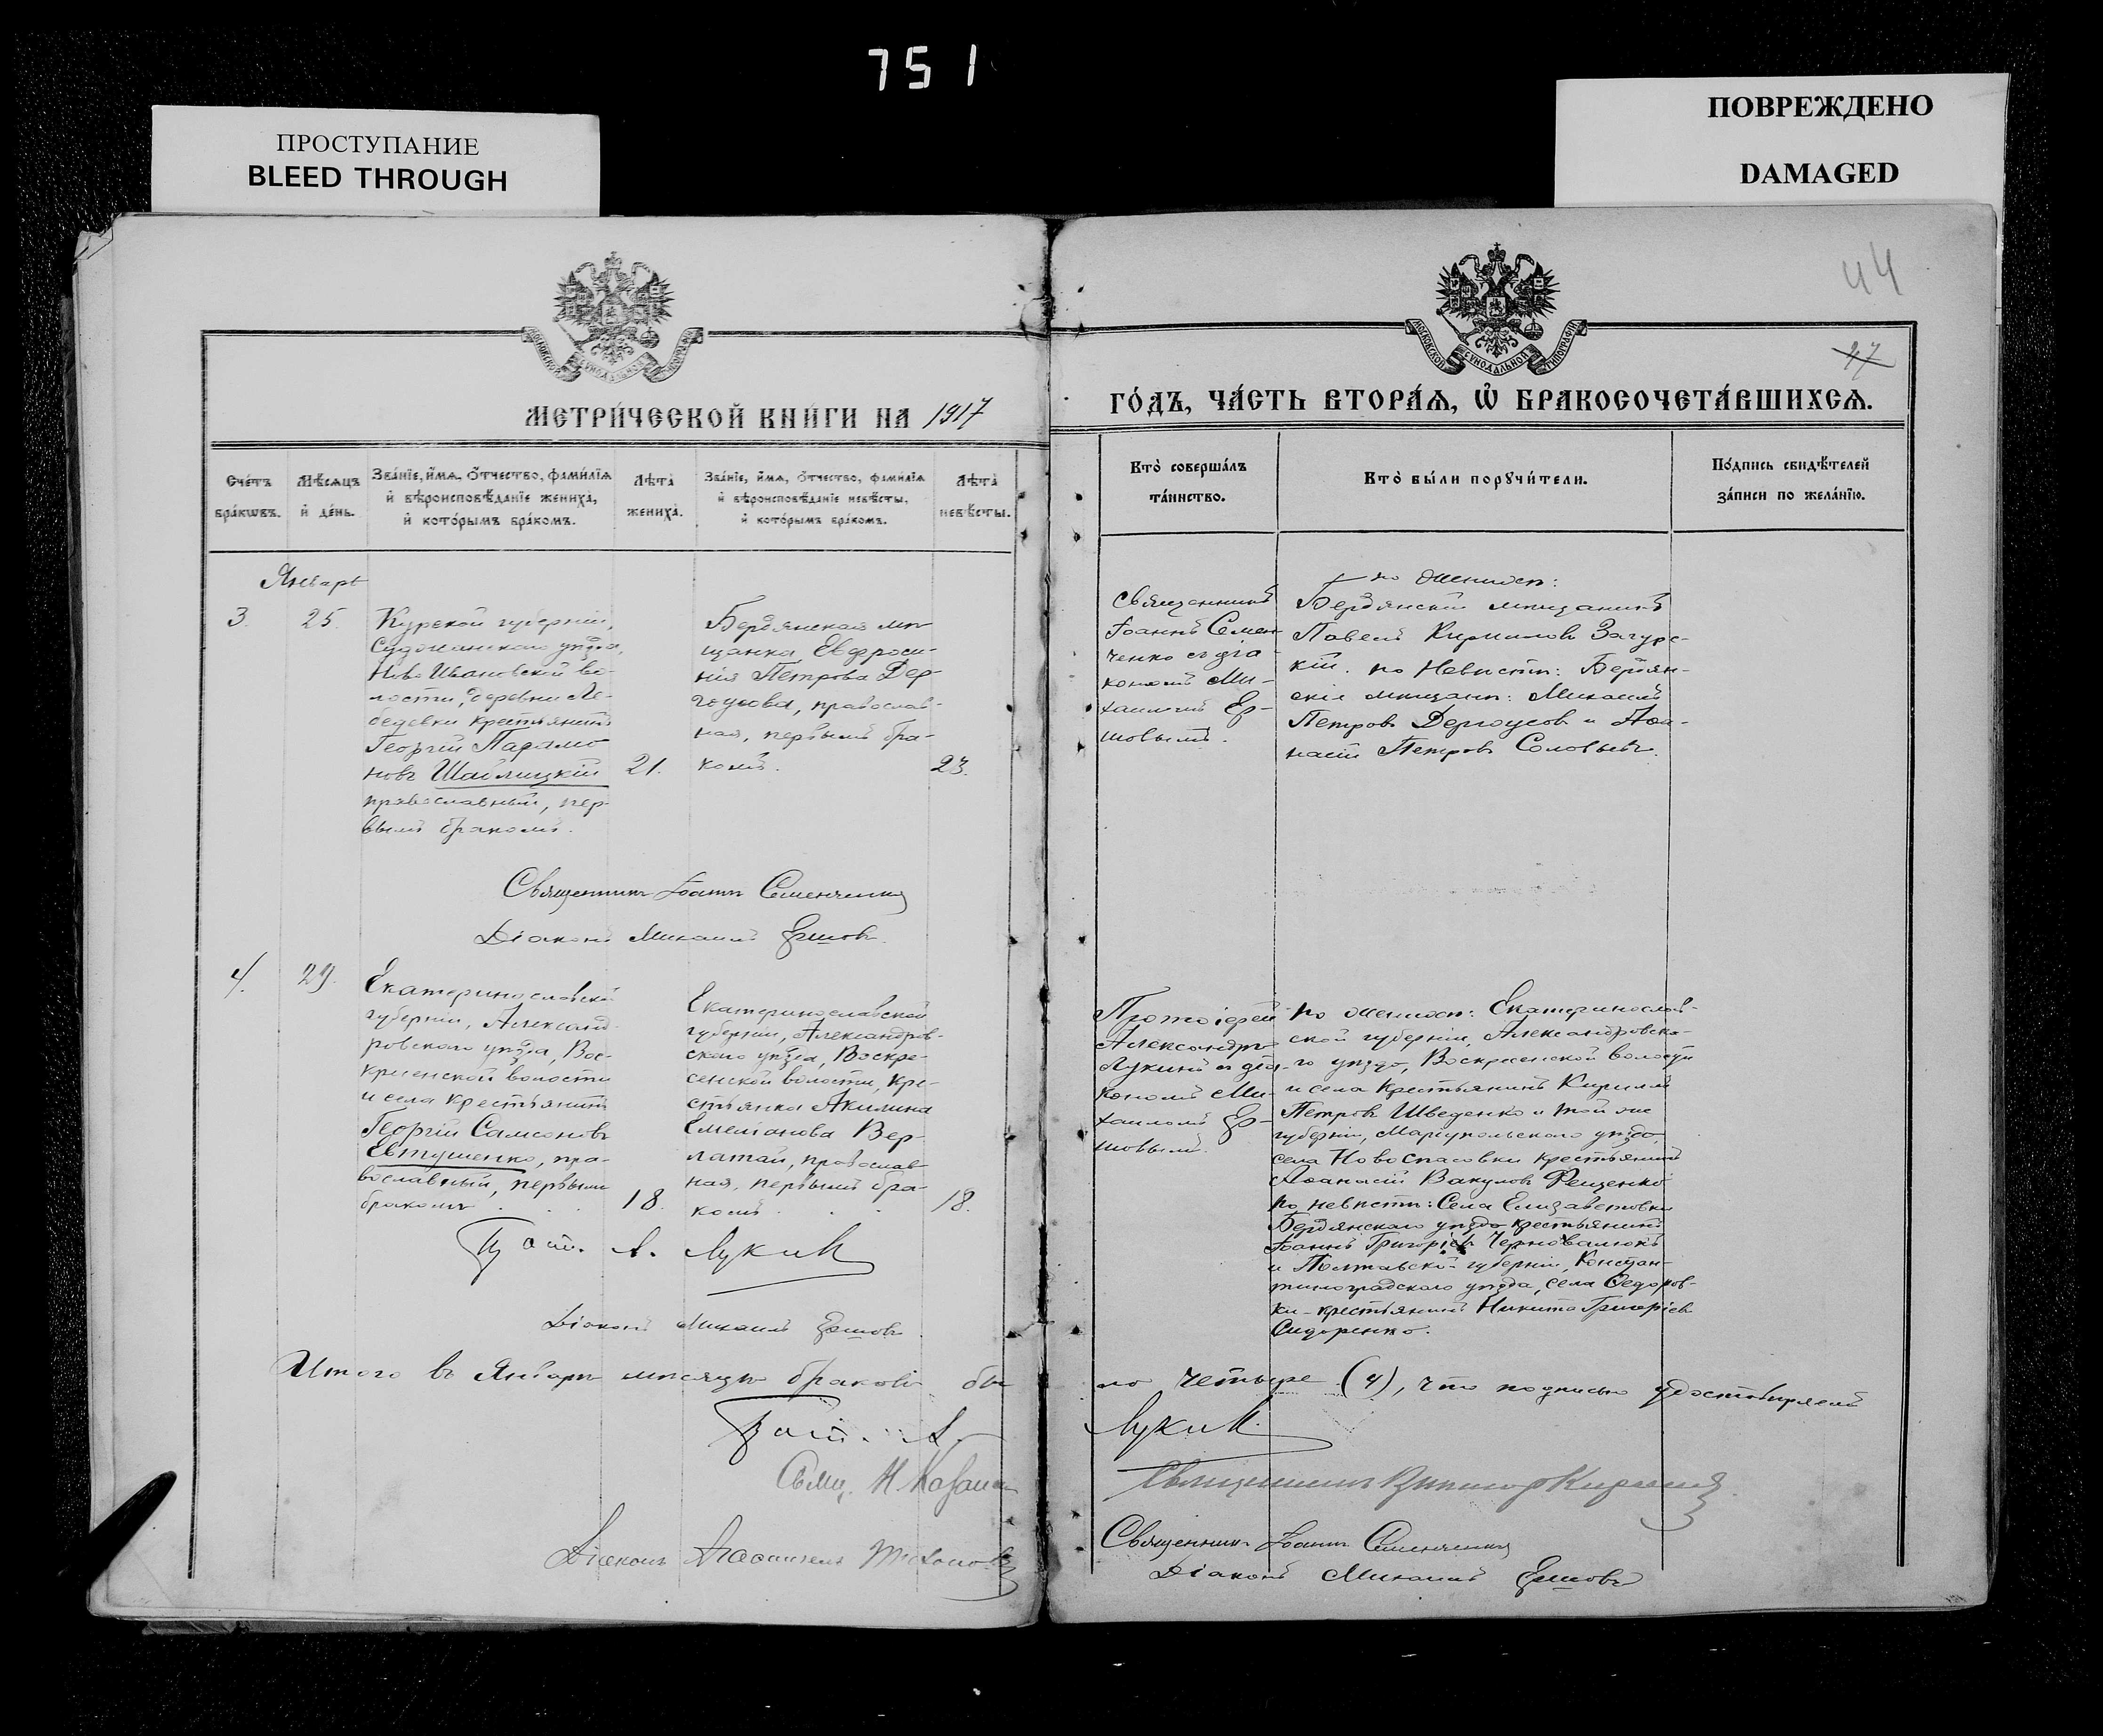 751
ПРОСТУПАНИЕ
BLEED THROUGH
ПОВРЕЖДЕНО
DAMAGED
44
47
МОСКОВСКОЙ СѴНОДАЛЬНОЙ ТИПОГРАФІИ
МОСКОВСКОЙ СѴНОДАЛЬНОЙ ТИПОГРАФІИ
МЕТРИ́ЧЕСКОЙ КНИ́ГИ НА 1917
ГО́ДЪ, ЧА́СТЬ ВТОРА́Ѧ, Ѡ҆ БРАКОСОЧЕТА́ВШИХСѦ.
Сче́тъ
бра́кѡвъ.
Мѣ́сѧцъ
и҆ де́нь.
Зва́нїе, и҆́мѧ, ѻ҆́тчество, фами́лїѧ
и҆ вѣроисповѣ́данїе жениха̀,
и҆ кото́рымъ бра́комъ.
Лѣ́та̀
жениха̀.
Зва́нїе, и҆́мѧ, ѻ҆́тчество, фами́лїѧ
и҆ вѣроисповѣ́данїе невѣ́сты,
и҆ кото́рымъ бра́комъ.
Лѣ́та̀
невѣ́сты.
Кто̀ соверша́лъ
та́инство.
Кто̀ бы́ли порꙋчи́тели.
По́дпись свидѣ́телей
за́писи по жела́нїю.
Январь
3.
25.
Курской губерніи,
Суджанскаго уѣзда,
Ново Ивановской во-
лости, деревни Ле-
бедевки крестьянинъ
Георгій Парамо
новъ Шаблицкій
православный, пер-
вымъ бракомъ.
21.
Бердянская мѣ
щанка Евфроси-
нія Петрова Дер-
гоусова, православ-
ная, первымъ бра-
комъ.
23.
Священникъ
Іоаннъ Семен-
ченко съ діа-
кономъ Ми-
хаиломъ Ер-
шовымъ.
по женихѣ:
Бердянскій мѣщанинъ
Павелъ Кирилловъ Загурс-
кій. по Невѣстѣ: Бердян-
скіе мѣщане: Михаилъ
Петровъ Дергоусовъ и Аѳа-
насій Петровъ Соловьевъ.
Священникъ Іоаннъ Семенченко
Діаконъ Михаилъ Ершовъ.
4.
29.
Екатеринославской
губерніи, Александ-
ровскаго уѣзда, Вос-
кресенской волости
и села крестьянинъ
Георгій Самсоновъ
Евтушенко, пра-
вославный, первымъ
бракомъ . . .
18.
Екатеринославской
губерніи, Александров-
скаго уѣзда, Воскре-
сенской волости, кре-
стьянка Акилина
Емеліанова Вер-
латая, православ-
ная, первымъ бра-
комъ . . .
18.
Протоіерей
Александръ
Лукинъ съ діа-
кономъ Ми-
хаиломъ Ер-
шовымъ.
по женихѣ: Екатеринослав-
ской губерніи, Александровска-
го уѣзда, Воскресенской волости
и села крестьянинъ Кириллъ
Петровъ Шведенко и той же
губерніи, Маріупольскаго уѣзда,
села Новоспасовки крестьянинъ
Аѳанасій Вакуловъ Фещенко
по невѣстѣ: Села Елизаветовки
Бердянскаго уѣзда крестьянинъ
Іоаннъ Григоріевъ Черновалюкъ
и Полтавской губерніи, Констан-
тиноградскаго уѣзда, села Ѳедоров-
ки - крестьянинъ Никита Григоріевъ
Сидоренко.
Прот. А. Лукинъ
Діаконъ Михаилъ Ершовъ.
Итого въ Январѣ мѣсяцѣ браковъ бы
ло четыре (4), что подписью удостовѣряемъ
Прот. А.
Лукинъ
Свящ. Н.
Священникъ
Діаконъ
Священникъ Іоаннъ Семенченко
Діаконъ Михаилъ Ершовъ